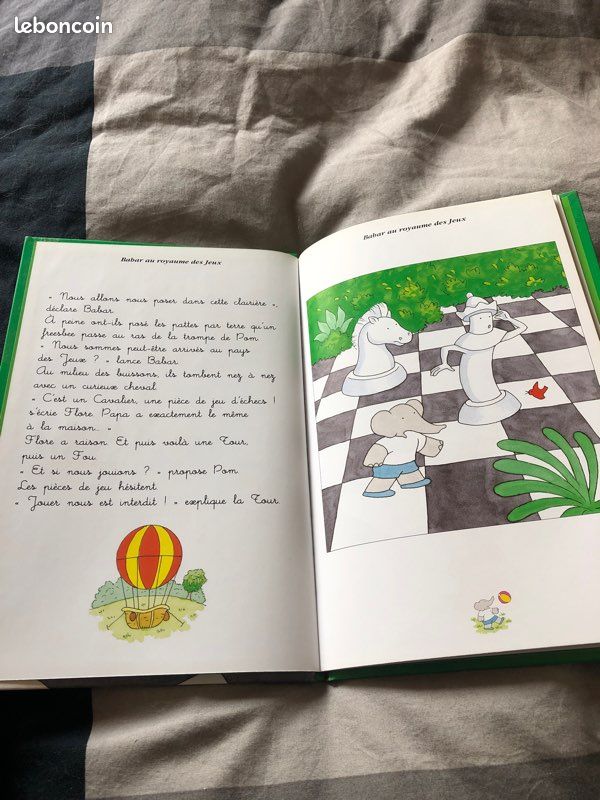 leboncoin
Babar au royaume des Jeux
« Nous allons nous poser dans cette clairière »,
déclare Babar.
A peine ont-ils posé les pattes par terre qu'un
freesbee passe au ras de la trompe de Pom.
« Nous sommes peut-être arrivés au pays
des Jeux ? » lance Babar.
Au milieu des buissons, ils tombent nez à nez
avec un curieux cheval.
« C'est un Cavalier, une pièce de jeu d'échecs !
s'écrie Flore. Papa a exactement le même
à la maison... »
Flore a raison. Et puis voilà une Tour,
puis un Fou.
« Et si nous jouions ? » propose Pom.
Les pièces de jeu hésitent.
« Jouer nous est interdit ! » explique la Tour.
Babar au royaume des Jeux